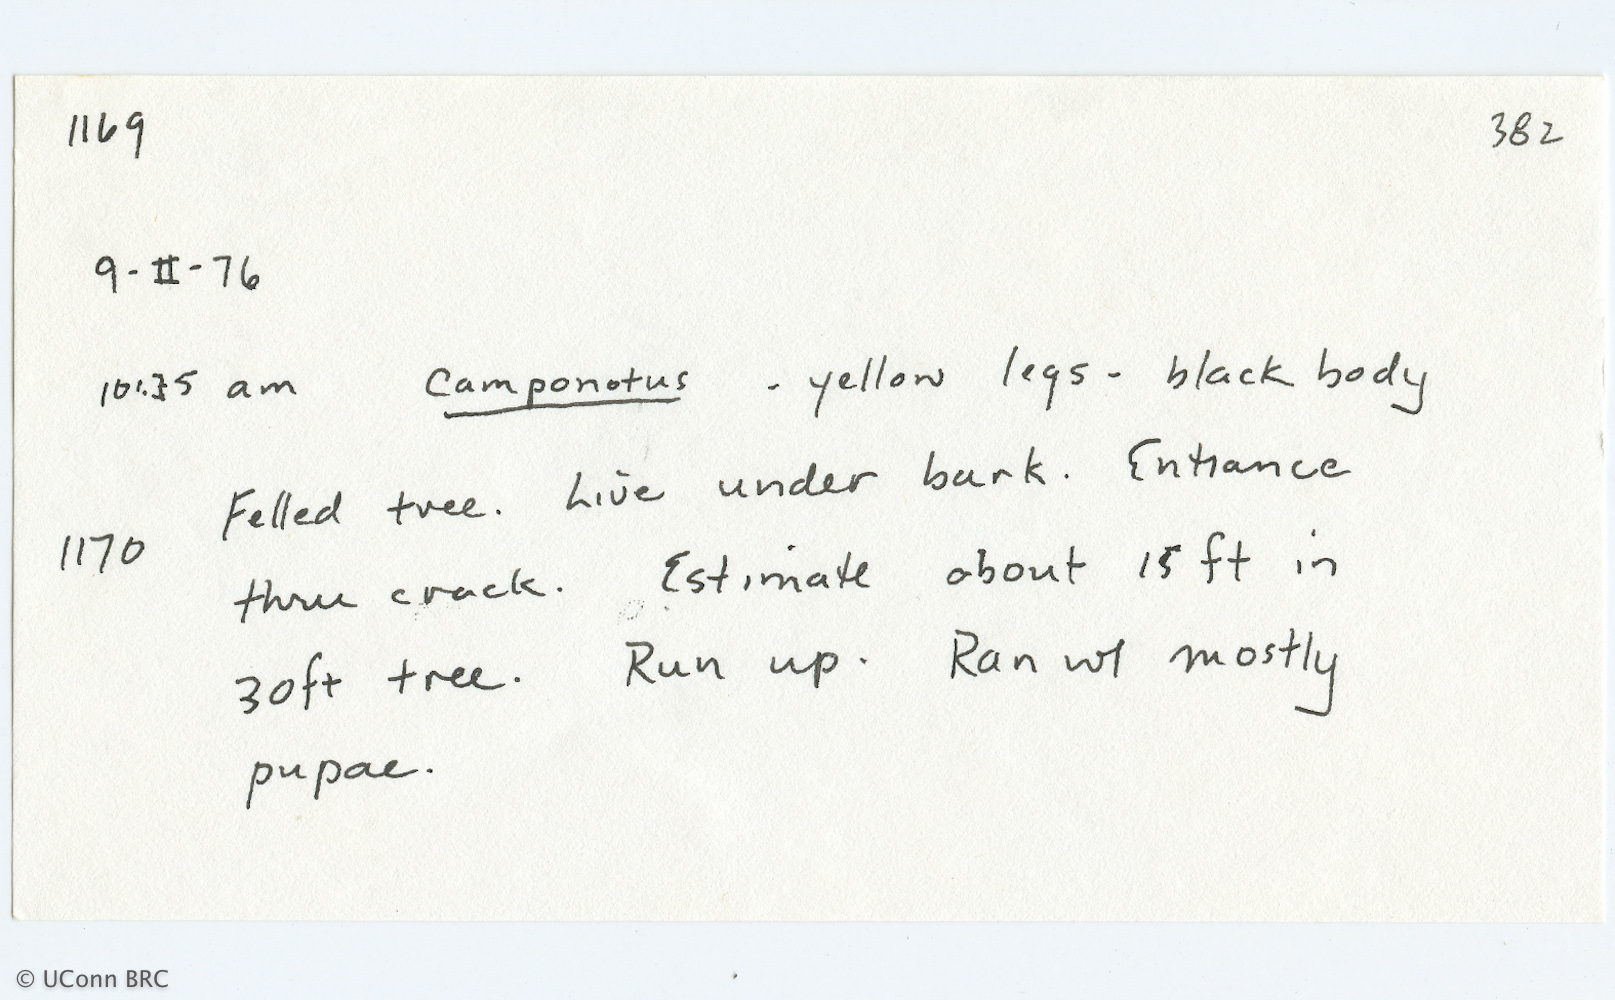 1169 382
9-II-76
10:35 am Camponotus - yellow legs - black body
Felled tree. Live under bark. Entrance
1170 thru crack. Estimate about 15 ft in
30ft tree. Run up. Ran w/ mostly
pupae.
© UConn BRC